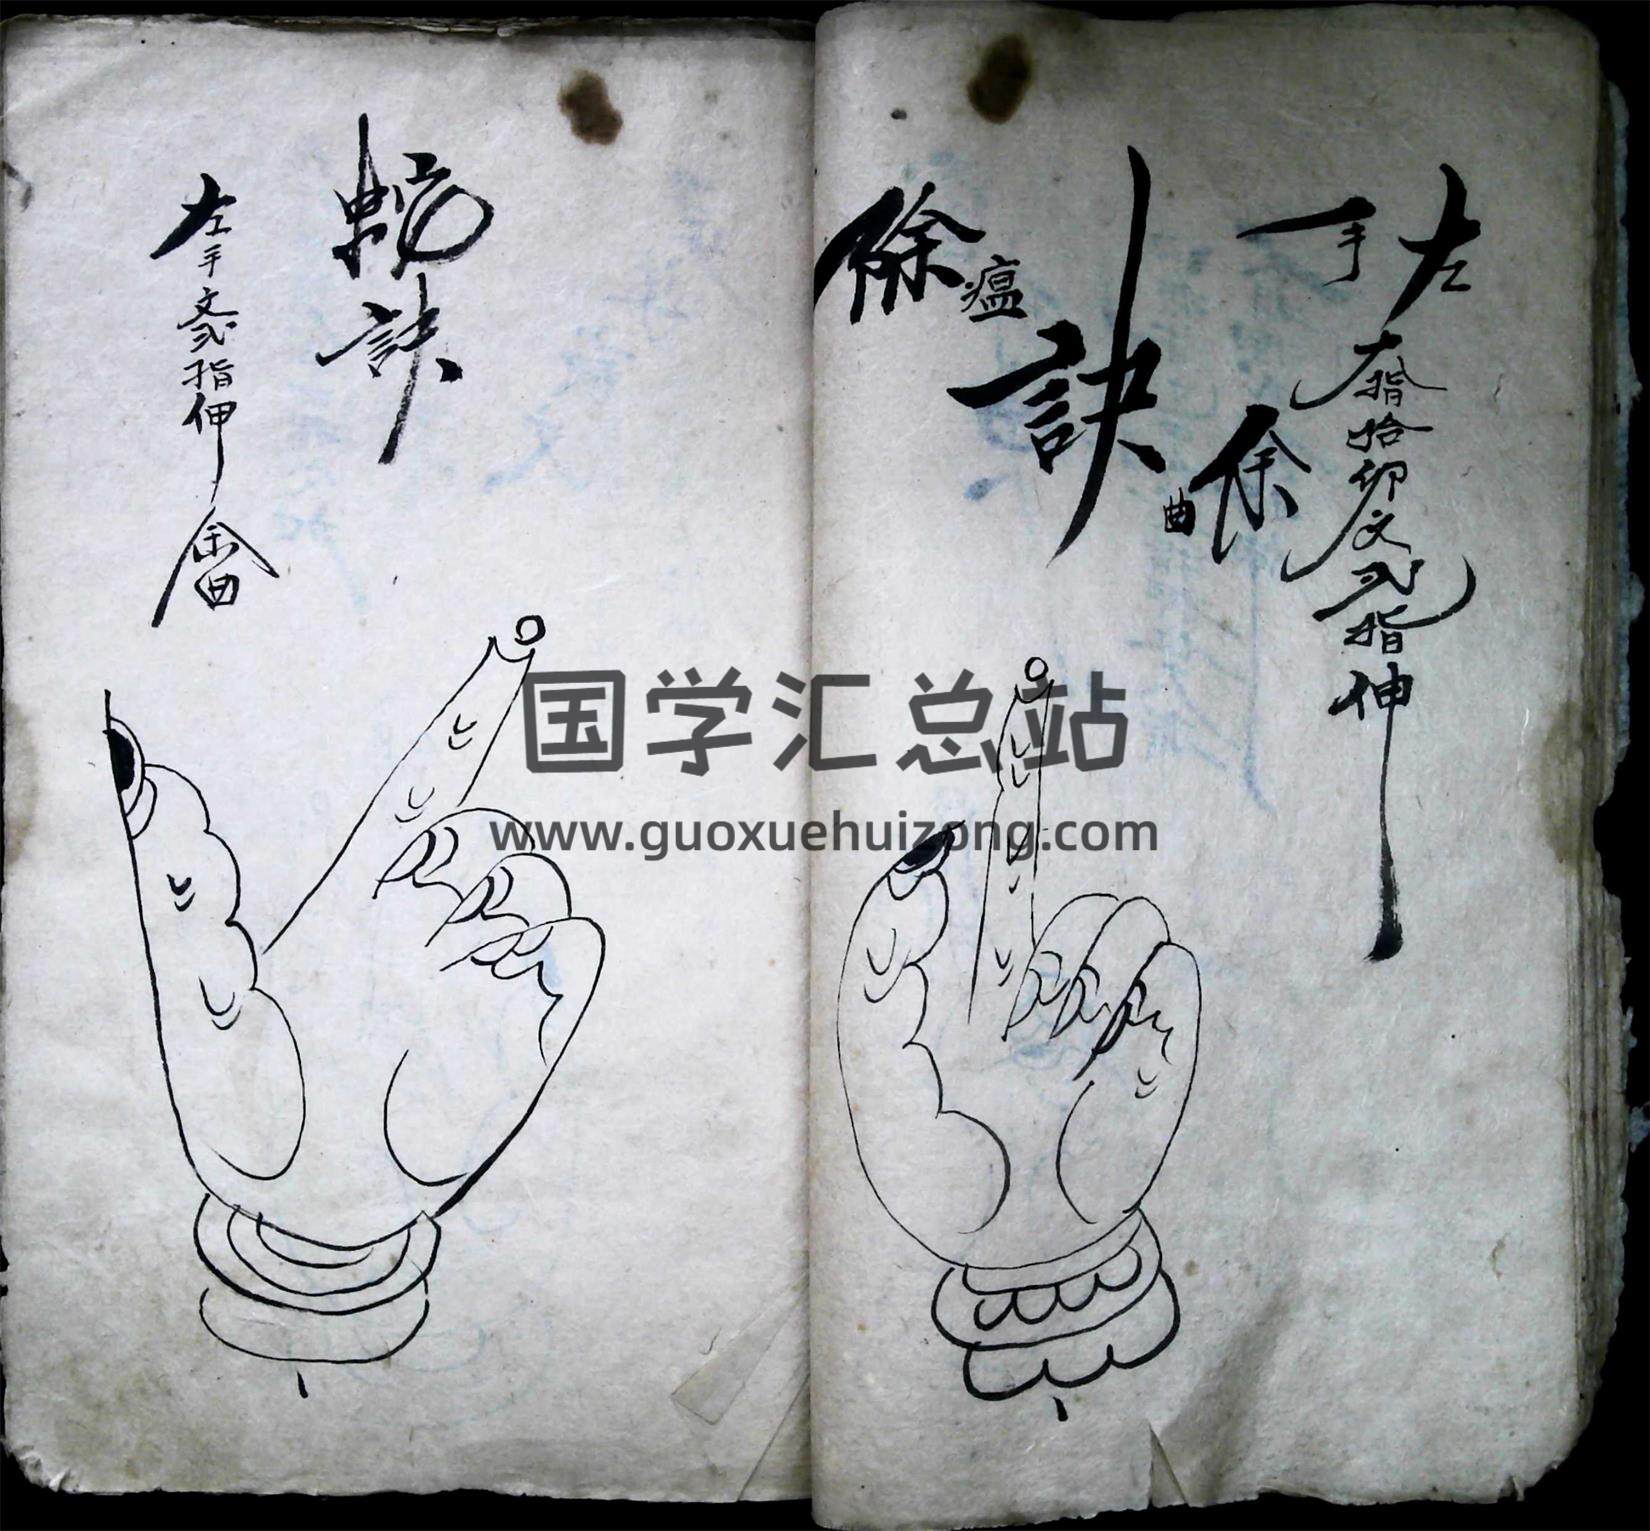 左手
大指拾卯文弍指伸
徐曲
除瘟訣
蛇訣
左手文弍指伸
余曲
国学汇总站
www.guoxuehuizong.com